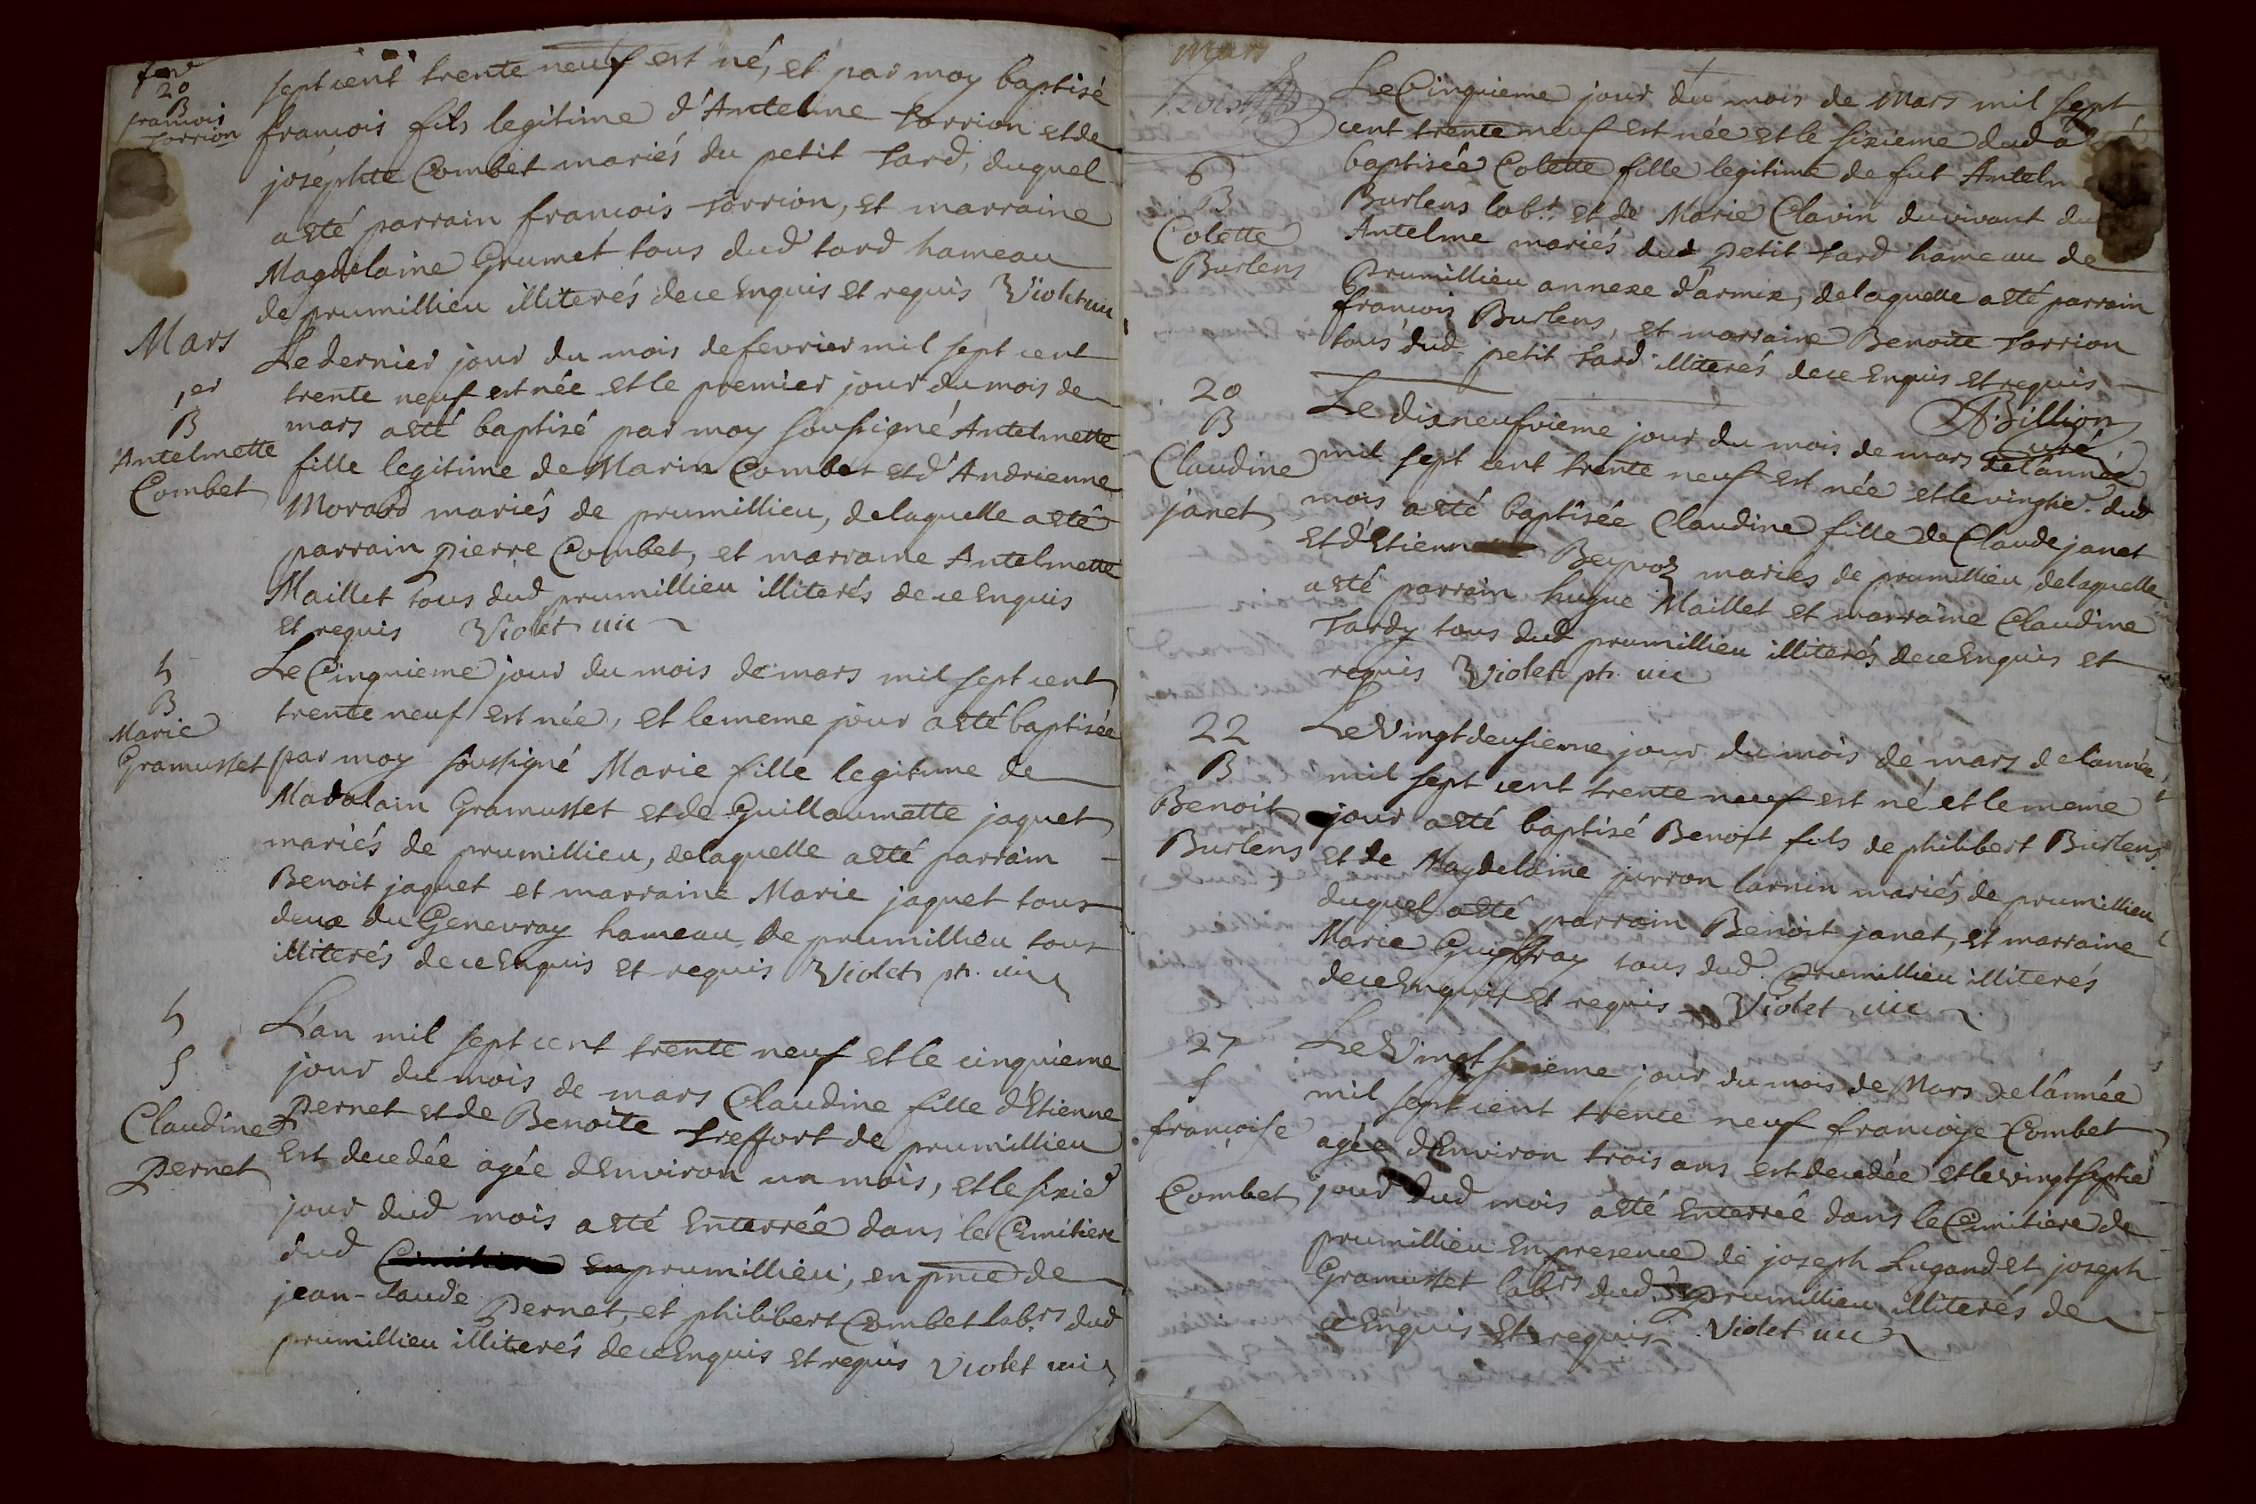 fevr
20
B
francois
Torrion
sept cent trente neuf est né, et par moy baptisé
francois fils legitime d'Antelme Torrion et de
josephte Combet mariés du petit Tard, duquel
a eté parrain francois Torrion, et marraine
Magdelaine Grumet tous dud tard hameau
de prumillieu illiterés de ce Enquis et requis Violet vic
Mars
1er
B
Antelmette
Combet
Le dernier jour du mois de fevrier mil sept cent
trente neuf est née et le premier jour du mois de
mars a eté baptisé par moy soussigné Antelmette
fille legitime de Marin Combet et d'Andrienne
Morard mariés de prumillieu, de laquelle a eté
parrain pierre Combet, et marraine Antelmette
Maillet tous dud prumillieu illiterés de ce Enquis
et requis Violet vic
5
B
Marie
Gramusset
Le Cinquieme jour du mois de mars mil sept cent
trente neuf est née, et le meme jour a eté baptisée
par moy soussigné Marie fille legitime de
Madalain Gramusset et de Guillaumette jaquet
mariés de prumillieu, de laquelle a eté parrain
Benoit jaquet et marraine Marie jaquet tous
deux du Genevray hameau de prumillieu tous
illiterés de ce Enquis et requis Violet ptr. vic
5
S
Claudine
Pernet
L'an mil sept cent trente neuf et le cinquieme
jour du mois de mars Claudine fille d'Etienne
Pernet et de Benoite Treffort de prumillieu
est decedée agée d'Environ un mois, et le sixie
jour dud mois a eté Enterrée dans le Cemitiere
dud prumillieu, en pnce de
jean-claude Pernet, et philibert Combet labrs dud
prumillieu illiterés de ce Enquis et requis Violet vic
mars
6
B
Colette
Burlens
Le Cinquieme jour du mois de Mars mil sept
cent trente neuf est née et le sixieme dud a
baptisée Colette fille legitime de fut Anteln
Burlens labr. et de Marie Clavin du vivant du
Antelme mariés dud petit Tard hameau de
Prumillieu annexe d'armix, de laquelle a eté parrain
francois Burlens, et marraine Benoite Torrion
tous dud petit Tard illiterés de ce Enquis et requis
A. Billion
curé
20
B
Claudine
janet
Le disneufvieme jour du mois de mars de l'année
mil sept cent trente neuf est née et le vingtie. dud
mois a eté baptisée Claudine fille de Claude janet
et d'Etienn Beyvoz mariés de prumillieu, de laquelle
a eté parrain hugue Maillet et marraine Claudine
Tardy tous dud prumillieu illiterés de ce Enquis et
requis Violet ptr. vic
22
B
Benoit
Burlens
Le Vingt deusieme jour du mois de mars de l'année
mil sept cent trente neuf est né et le meme
jour a eté baptisé Benoit fils de philibert Burlens
et de Magdelaine jurron larnin mariés de prumillieu
duquel a eté parrain Benoit janet, et marraine
Marie Guiffray tous dud. Prumillieu illiterés
de ce Enquis et requis Violet vic
27
S
francoise
Combet
Le Vingt sixieme jour du mois de Mars de l'année
mil sept cent trente neuf francoise Combet
agée d'Environ trois ans est decedée et le vingt septie
jour dud mois a eté enterrée dans le Cemitiere de
prumillieu en presence de joseph Lugand et joseph
Gramusset labrs dud. Prumillieu illiterés de
ce Enquis et requis Violet vic